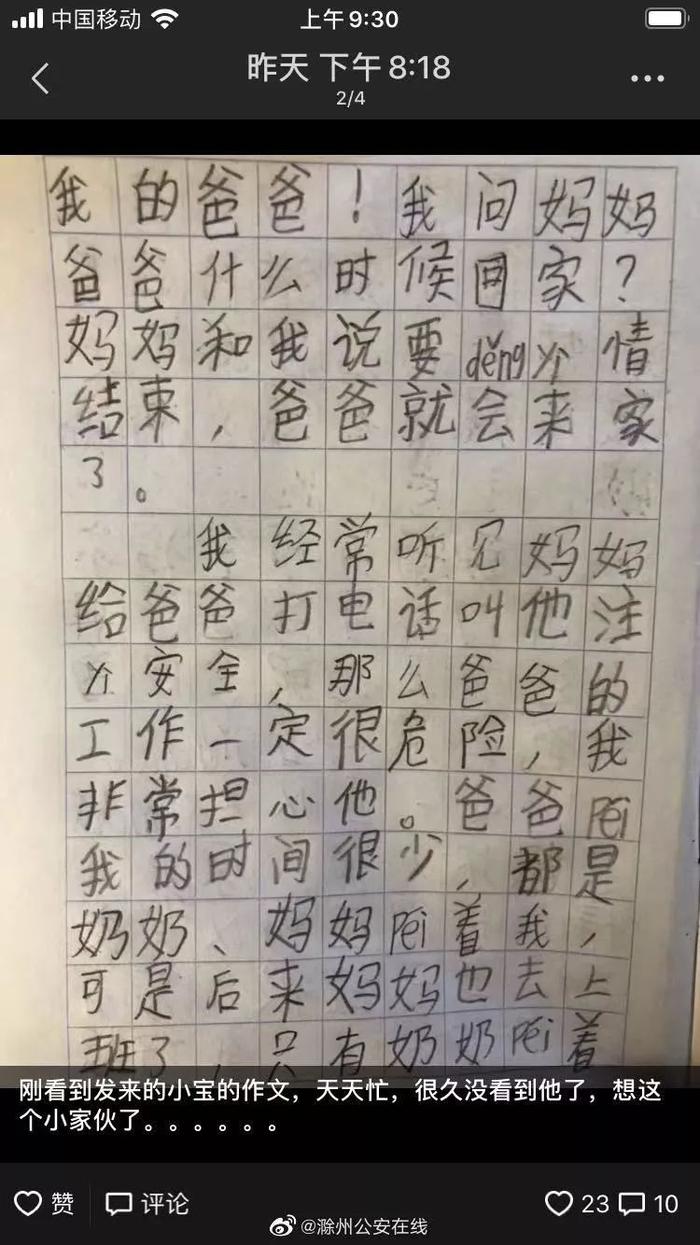 中国移动
上午9:30
昨天 下午8:18
2/4
我的爸爸！我问妈妈
爸爸什么时候回家？
妈妈和我说要děng yì情
结束，爸爸就会来家
了。
我经常听见妈妈
给爸爸打电话叫他注
yì安全，那么爸爸的
工作一定很危险，我
非常担心他。爸爸péi
我的时间很少，都是
奶奶、妈妈péi着我，
可是后来妈妈也去上
班了，只有奶奶péi着
刚看到发来的小宝的作文，天天忙，很久没看到他了，想这
个小家伙了。。。。。。
赞 评论 23 10
@滁州公安在线